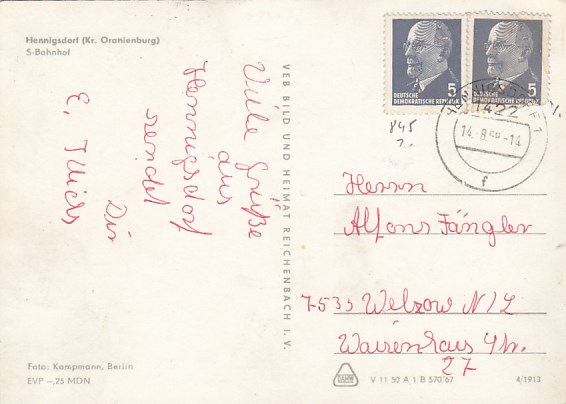 Hennigsdorf (Kr. Oranienburg)
S-Bahnhof
Viele Grüße
aus
Hennigsdorf
sendet
Dir
E.
VEB BILD UND HEIMAT REICHENBACH I. V.
5
DEUTSCHE
DEMOKRATISCHE REPUBLIK
5
DEUTSCHE
DEMOKRATISCHE REPUBLIK
1422
f
845
Herrn
Alfons Fängler
7-535 Welzow N/L
Waisenhaus Str.
27
Foto: Kampmann, Berlin
EVP -,25 MDN
V 11 50 A 1 B 570/67
4/1913